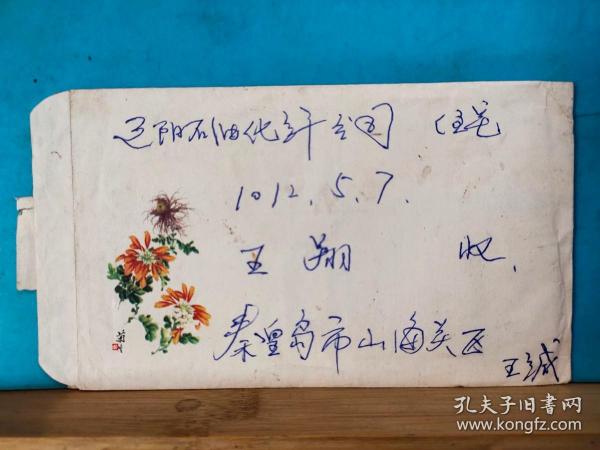 辽阳石油化纤公司 住宅
1012.5.7.
王翔 收.
秦皇岛市山海关区
王诚
孔夫子旧书网
www.kongfz.com